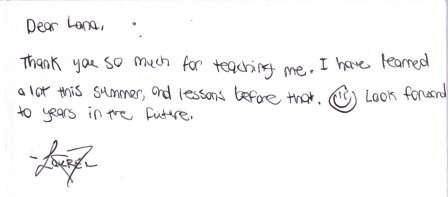 Dear Lana,
Thank you so much for teaching me. I have learned
a lot this summer, and lessons before that. Look forward
to years in the future.